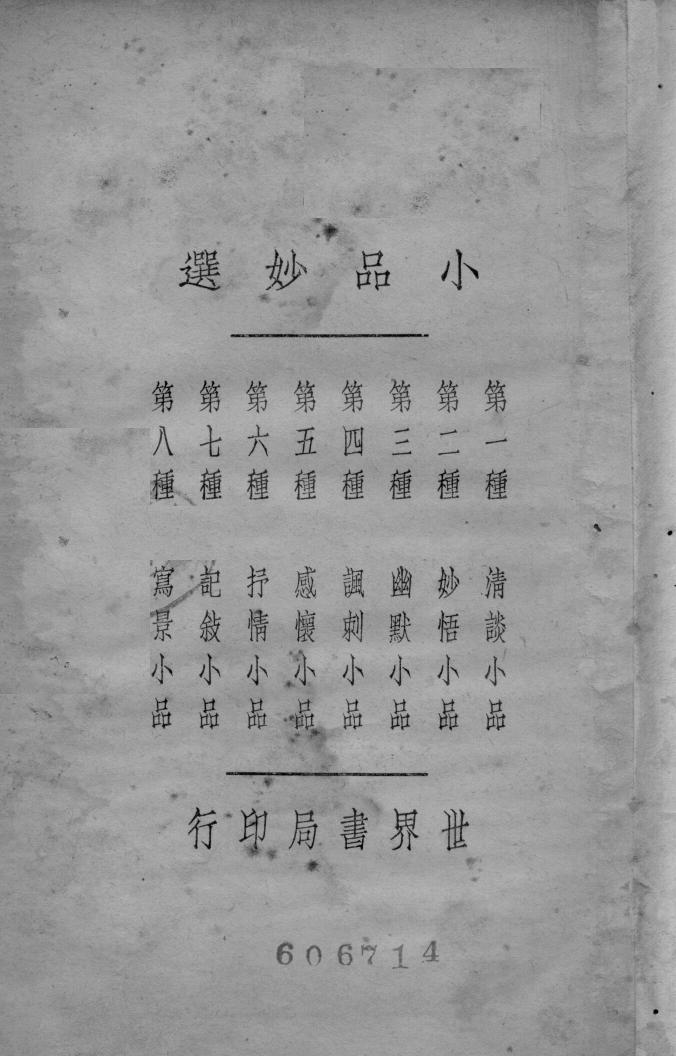 小品妙選
第一種 清談小品
第二種 妙悟小品
第三種 幽默小品
第四種 諷刺小品
第五種 感懷小品
第六種 抒情小品
第七種 記敍小品
第八種 寫景小品
世界書局印行
606714